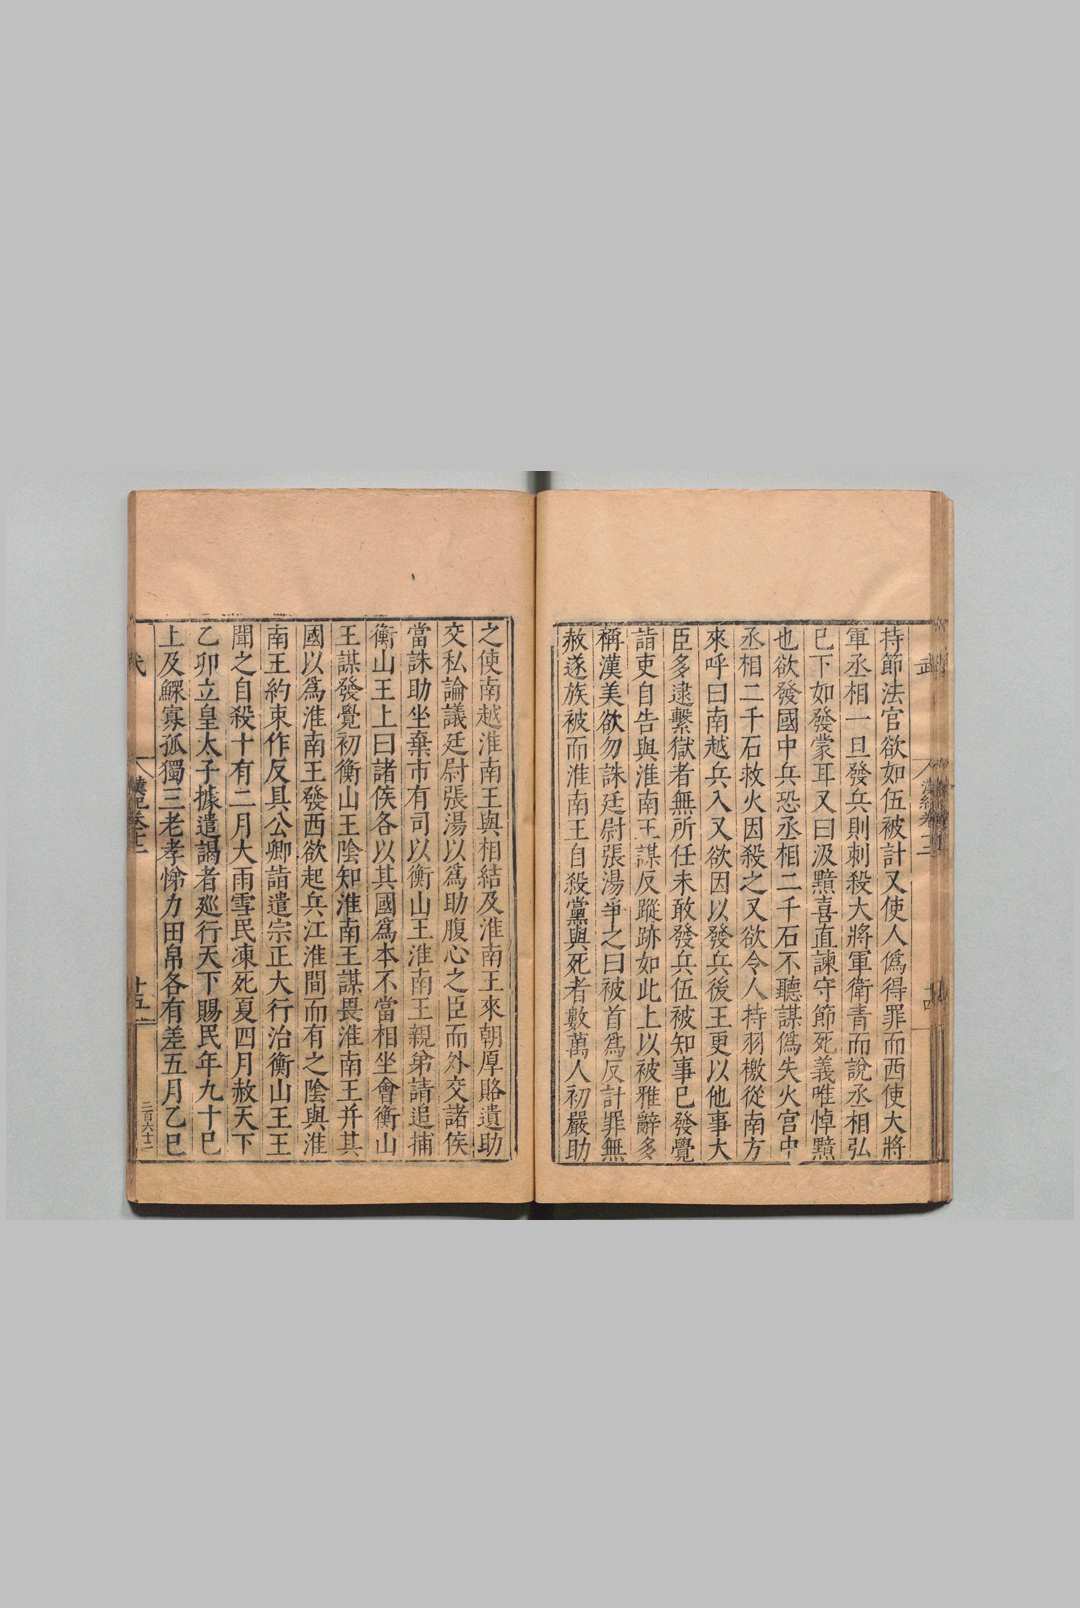 持節法官欲如伍被計又使人偽得罪而西使大將
軍丞相一旦發兵則刺殺大將軍衛青而說丞相弘
已下如發蒙耳又曰汲黯喜直諫守節死義唯悼黯
也欲發國中兵恐丞相二千石不聽謀偽失火宮中
丞相二千石救火因殺之又欲令人持羽檄從南方
來呼曰南越兵入又欲因以發兵後王更以他事大
臣多逮繫獄者無所任未敢發兵伍被知事已發覺
詣吏自告與淮南王謀反蹤跡如此上以被雅辭多
稱漢美欲勿誅廷尉張湯爭之曰被首爲反計罪無
赦遂族被而淮南王自殺黨與死者數萬人初嚴助
之使南越淮南王與相結及淮南王來朝厚賂遺助
交私論議廷尉張湯以爲助腹心之臣而外交諸侯
當誅助坐棄市有司以衡山王淮南王親弟請追捕
衡山王上曰諸侯各以其國爲本不當相坐會衡山
王謀發覺初衡山王陰知淮南王謀畏淮南王并其
國以爲淮南王發西欲起兵江淮間而有之陰與淮
南王約束作反具公卿請遣宗正大行治衡山王王
聞之自殺十有二月大雨雪民凍死夏四月赦天下
乙卯立皇太子據遣謁者巡行天下賜民年九十已
上及鰥寡孤獨三老孝悌力田帛各有差五月乙巳
漢紀卷十二
十五
二百六十二